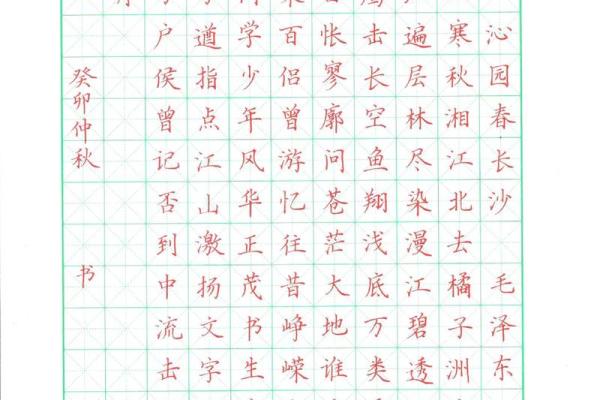 沁园春长沙 毛泽东
寒秋湘江北去橘子洲
遍层林尽染漫江碧透
击长空鱼翔浅底万类
怅寥廓问苍茫大地谁
百侣曾游忆往昔峥嵘
学少年风华正茂书生
遒指点江山激扬文字
户侯曾记否到中流击
癸卯仲秋 书